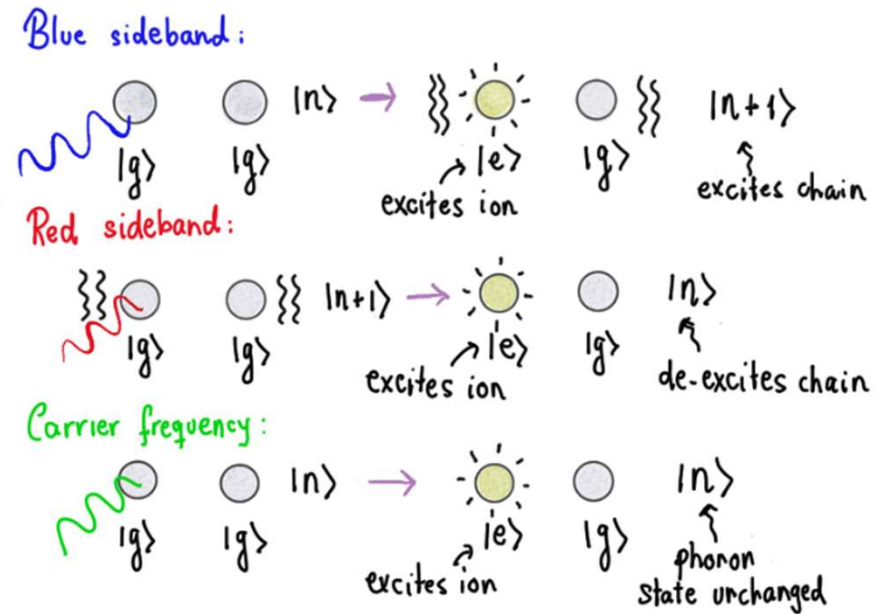 Blue sideband:
|g⟩ |g⟩ |n⟩ → |e⟩ |g⟩ |n+1⟩
excites ion
excites chain
Red sideband:
|g⟩ |g⟩ |n+1⟩ → |e⟩ |g⟩ |n⟩
excites ion
de-excites chain
Carrier frequency:
|g⟩ |g⟩ |n⟩ → |e⟩ |g⟩ |n⟩
excites ion
phonon
state unchanged